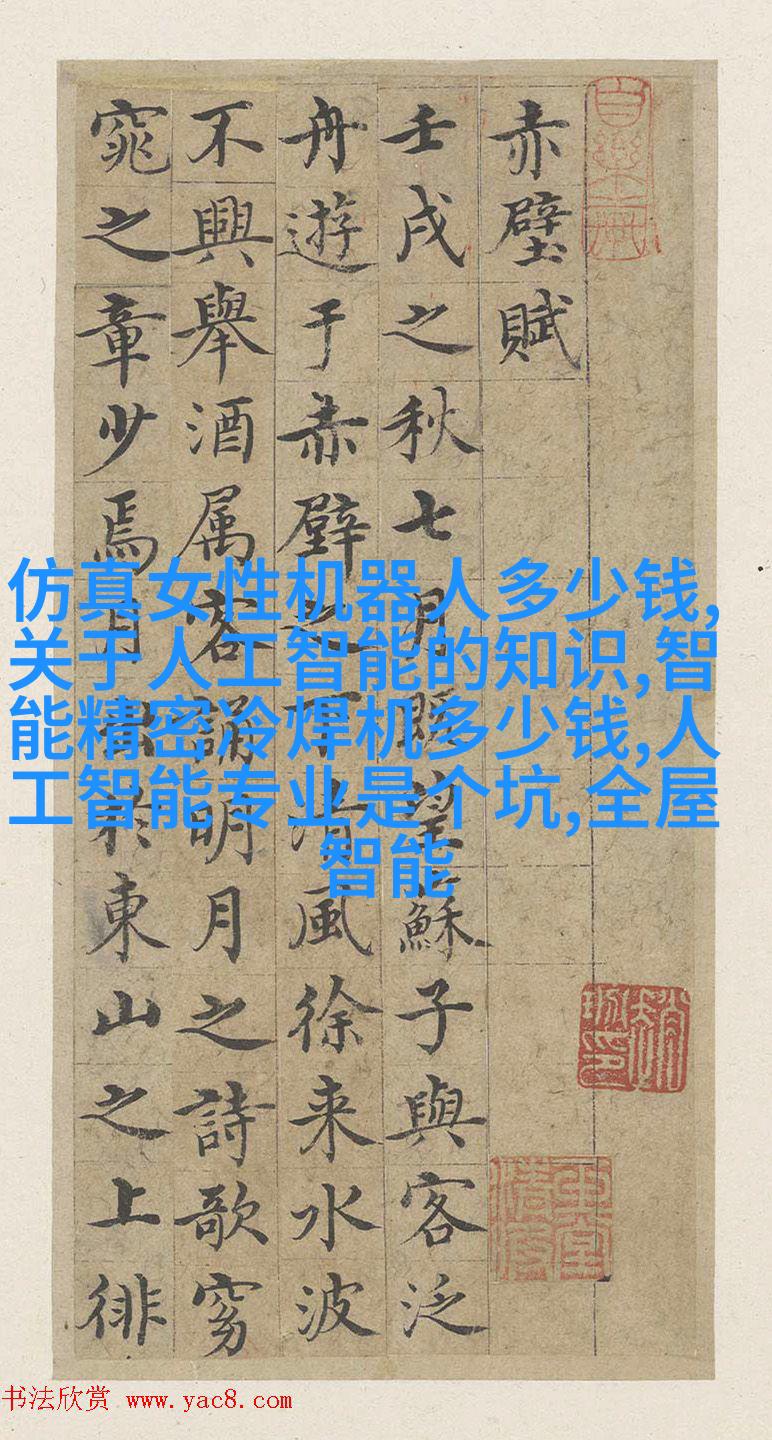 赤壁賦
壬戌之秋七月既望蘇子與客泛
舟遊于赤壁之下清風徐来水波
不興舉酒属客誦明月之詩歌窈
窕之章少焉月出於東山之上徘
仿真女性机器人多少钱,
关于人工智能的知识,智
能精密冷焊机多少钱,人
工智能专业是个坑,全屋
智能
书法欣赏 www.yac8.com